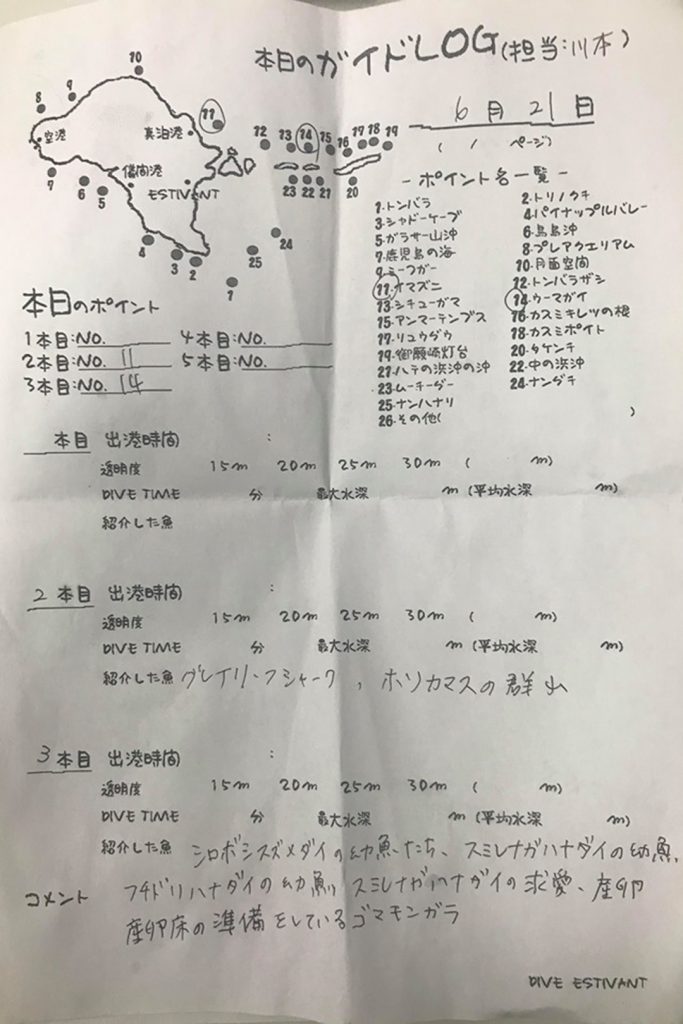 本日のガイドLOG(担当:川本)
6月21日
( / ページ)
10
8
9
11
空港
真泊港
12
13
14
15
16
17
18
19
7
6
5
儀間港
ESTIVANT
23
22
21
20
4
3
2
25
24
1
-ポイント名一覧-
1.トンバラ 2.トリノクチ
3.シャドーケーブ 4.パイナップルバレー
5.ガラサー山沖 6.鳥島沖
7.鹿児島の海 8.プレアクエリアム
9.ミーフガー 10.月面空間
11.イマズニ 12.トンバラザシ
13.シチューガマ 14.ウーマガイ
15.アンマーテンプス 16.カスミキレツの根
17.リュウダウ 18.カスミポイント
19.御願崎灯台 20.タケンチ
21.ハテの浜沖の沖 22.中の浜沖
23.ムーチーダー 24.ナンダチ
25.ナンハナリ
26.その他( )
本日のポイント
1本目:NO. 4本目:NO.
2本目:NO. 11 5本目:NO.
3本目:NO. 14
本目 出港時間 :
透明度 15m 20m 25m 30m ( m)
DIVE TIME 分 最大水深 m (平均水深 m)
紹介した魚
2本目 出港時間 :
透明度 15m 20m 25m 30m ( m)
DIVE TIME 分 最大水深 m (平均水深 m)
紹介した魚 グレイリーフシャーク, ホソカマスの群れ
3本目 出港時間 :
透明度 15m 20m 25m 30m ( m)
DIVE TIME 分 最大水深 m (平均水深 m)
紹介した魚 シロボシスズメダイの幼魚たち、スミレナガハナダイの幼魚、
コメント フチドリハナダイの幼魚、スミレナガハナダイの求愛、産卵
産卵床の準備をしているゴマモンガラ
DIVE ESTIVANT